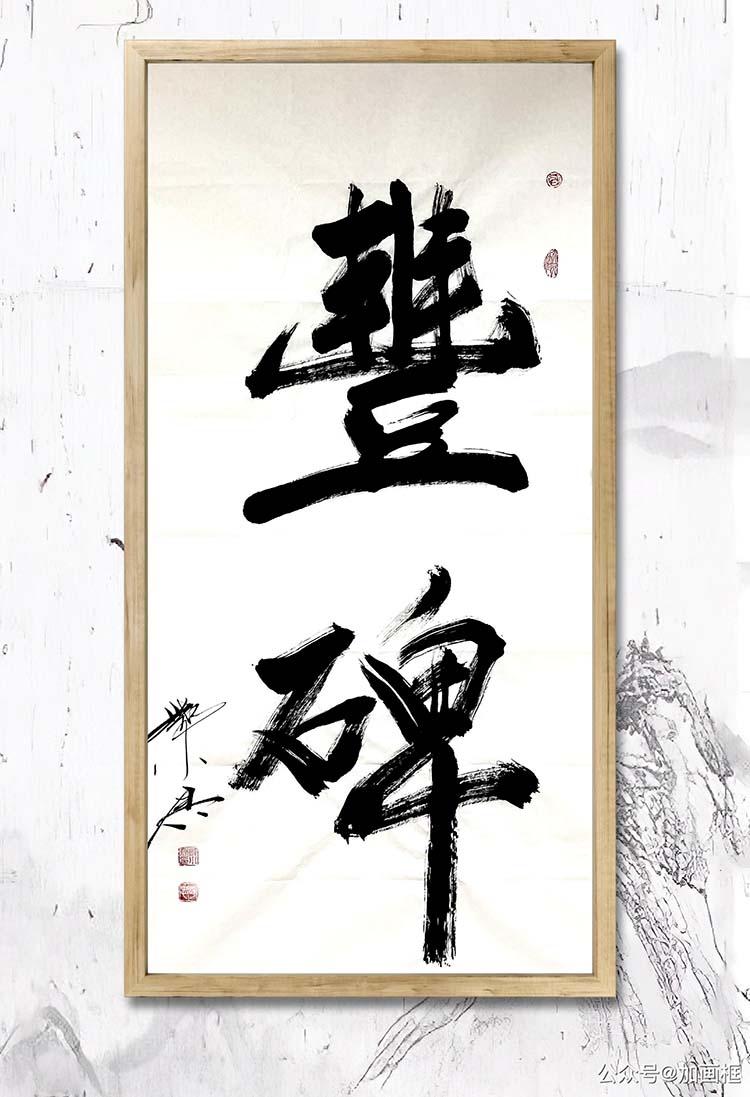 豐
碑
公众号@加画框